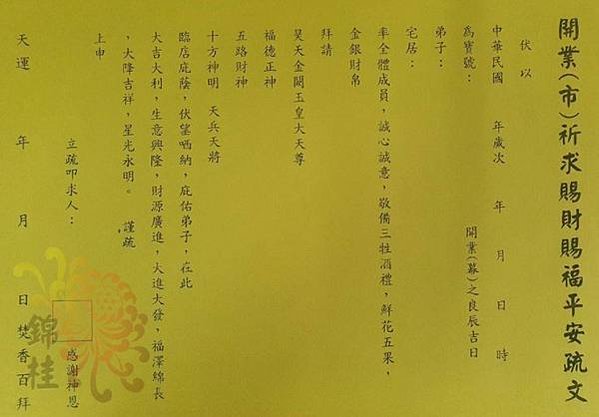 開業(市)祈求賜財賜福平安疏文
伏以
中華民國　年歲次　年　月　日　時
為寶號：　開業(幕)之良辰吉日
弟子：
宅居：
率全體成員，誠心誠意，敬備三牲酒禮，鮮花五果，
金銀財帛
拜請
昊天金闕玉皇大天尊
福德正神
五路財神
十方神明　天兵天將
臨店庇蔭，伏望哂納，庇佑弟子，在此
大吉大利，生意興隆，財源廣進，大進大發，福澤綿長
，大降吉祥，星光永明。　謹疏
上申
立疏叩求人：　感謝神恩
天運　年　月　日焚香百拜
錦桂